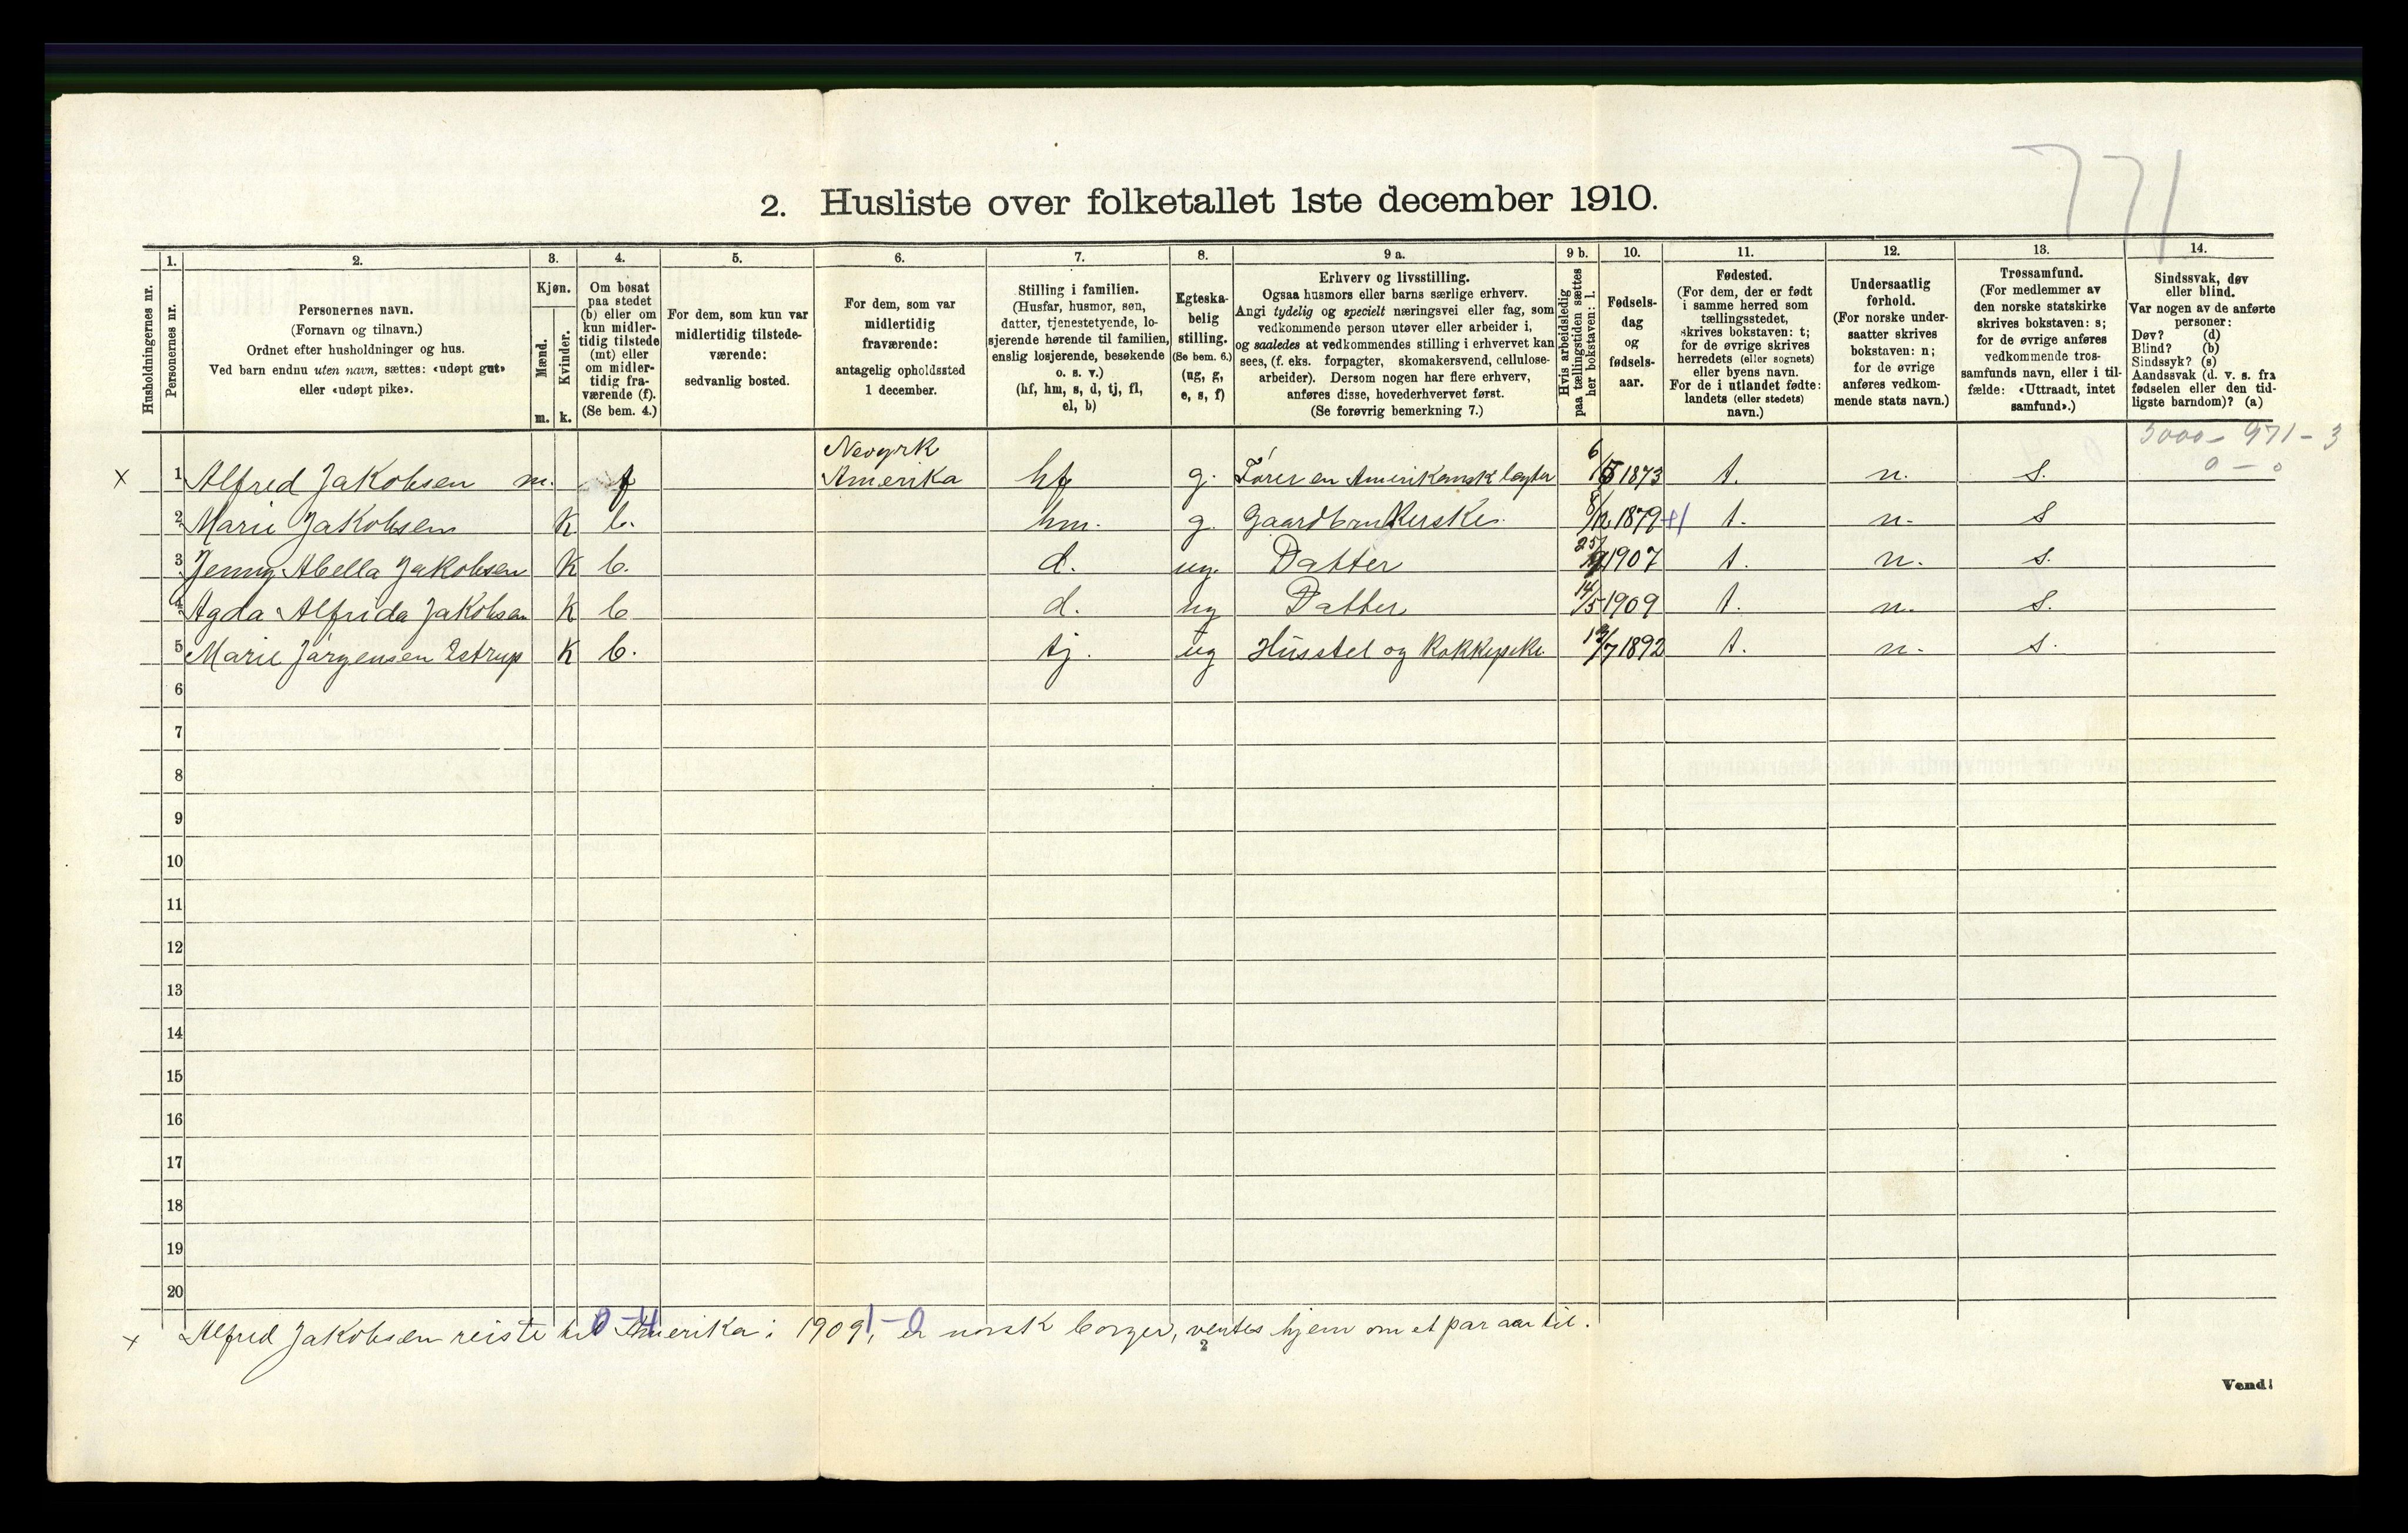 771
2. Husliste over folketallet 1ste december 1910.
Husholdningernes nr.
1.
Personernes nr.
2.
Personernes navn.
(Fornavn og tilnavn.)
Ordnet efter husholdninger og hus.
Ved barn endnu uten navn, sættes: «udøpt gut»
eller «udøpt pike».
3.
Kjøn.
Mænd.
Kvinder.
m. k.
4.
Om bosat
paa stedet
(b) eller om
kun midler-
tidig tilstede
(mt) eller
om midler-
tidig fra-
værende (f).
(Se bem. 4.)
5.
For dem, som kun var
midlertidig tilstede-
værende:
sedvanlig bosted.
6.
For dem, som var
midlertidig
fraværende:
antagelig opholdssted
1 december.
7.
Stilling i familien.
(Husfar, husmor, søn,
datter, tjenestetyende, lo-
sjerende hørende til familien,
enslig losjerende, besøkende
o. s. v.)
(hf, hm, s, d, tj, fl,
el, b)
8.
Egteska-
belig
stilling.
(Se bem. 6.)
(ug, g,
e, s, f)
9 a.
Erhverv og livsstilling.
Ogsaa husmors eller barns særlige erhverv.
Angi tydelig og specielt næringsvei eller fag, som
vedkommende person utøver eller arbeider i,
og saaledes at vedkommendes stilling i erhvervet kan
sees, (f. eks. forpagter, skomakersvend, cellulose-
arbeider). Dersom nogen har flere erhverv,
anføres disse, hovederhvervet først.
(Se forøvrig bemerkning 7.)
9 b.
Hvis arbeidsledig
paa tællingstiden sættes
her bokstaven: l.
10.
Fødsels-
dag
og
fødsels-
aar.
11.
Fødested.
(For dem, der er født
i samme herred som
tællingsstedet,
skrives bokstaven: t;
for de øvrige skrives
herredets (eller sognets)
eller byens navn.
For de i utlandet fødte:
landets (eller stedets)
navn.)
12.
Undersaatlig
forhold.
(For norske under-
saatter skrives
bokstaven: n;
for de øvrige
anføres vedkom-
mende stats navn.)
13.
Trossamfund.
(For medlemmer av
den norske statskirke
skrives bokstaven: s;
for de øvrige anføres
vedkommende tros-
samfunds navn, eller i til-
fælde: «Uttraadt, intet
samfund».)
14.
Sindssvak, døv
eller blind.
Var nogen av de anførte
personer:
Døv? (d)
Blind? (b)
Sindssyk? (s)
Aandssvak (d. v. s. fra
fødselen eller den tid-
ligste barndom)? (a)
3000 - 971 - 3
0 - 0
Neoyrk
x 1 Alfred Jakobsen m. f Amerika hf g. Fører en Amerikansk 1873 t. n. s.
2 Marie Jakobsen K b. hm. g. 8/12 1879 t. n. s
3 Jenny Abella Jakobsen K b. d. ug. Datter 1907 t. n. s.
4 Agda Alfrida Jakobsen K b d. ug Datter 14/5 1909 t. n. s.
5 Marie Jørgensen K b. tj. ug Husstel og 1892 t. n. s.
6
7
8
9
10
11
12
13
14
15
16
17
18
19
20
0-4 1-0
x Alfred Jakobsen reiste til Amerika i 1909, er norsk borger, ventes hjem om et par aar til.
2
Vend!